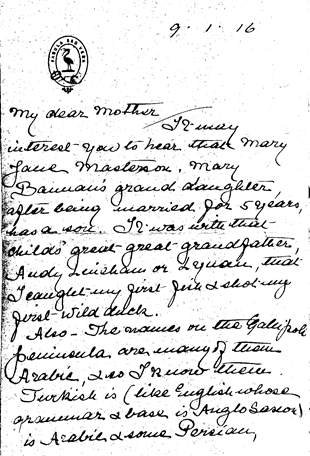 9.1.16
My dear Mother
It may
interest you to hear that Mary
Jane Masterson, Mary
grand daughter,
after being married for 5 years,
has a son. It was with that
childs' great great grandfather,
Andy or that
I caught my first fish & shot my
first wild duck.
Also – The names on the Gallipoli
peninsula are many of them
Arabic, & so I know them.
Turkish is (like English whose
grammar & base is Anglo Saxon)
is Arabic & some Persian,